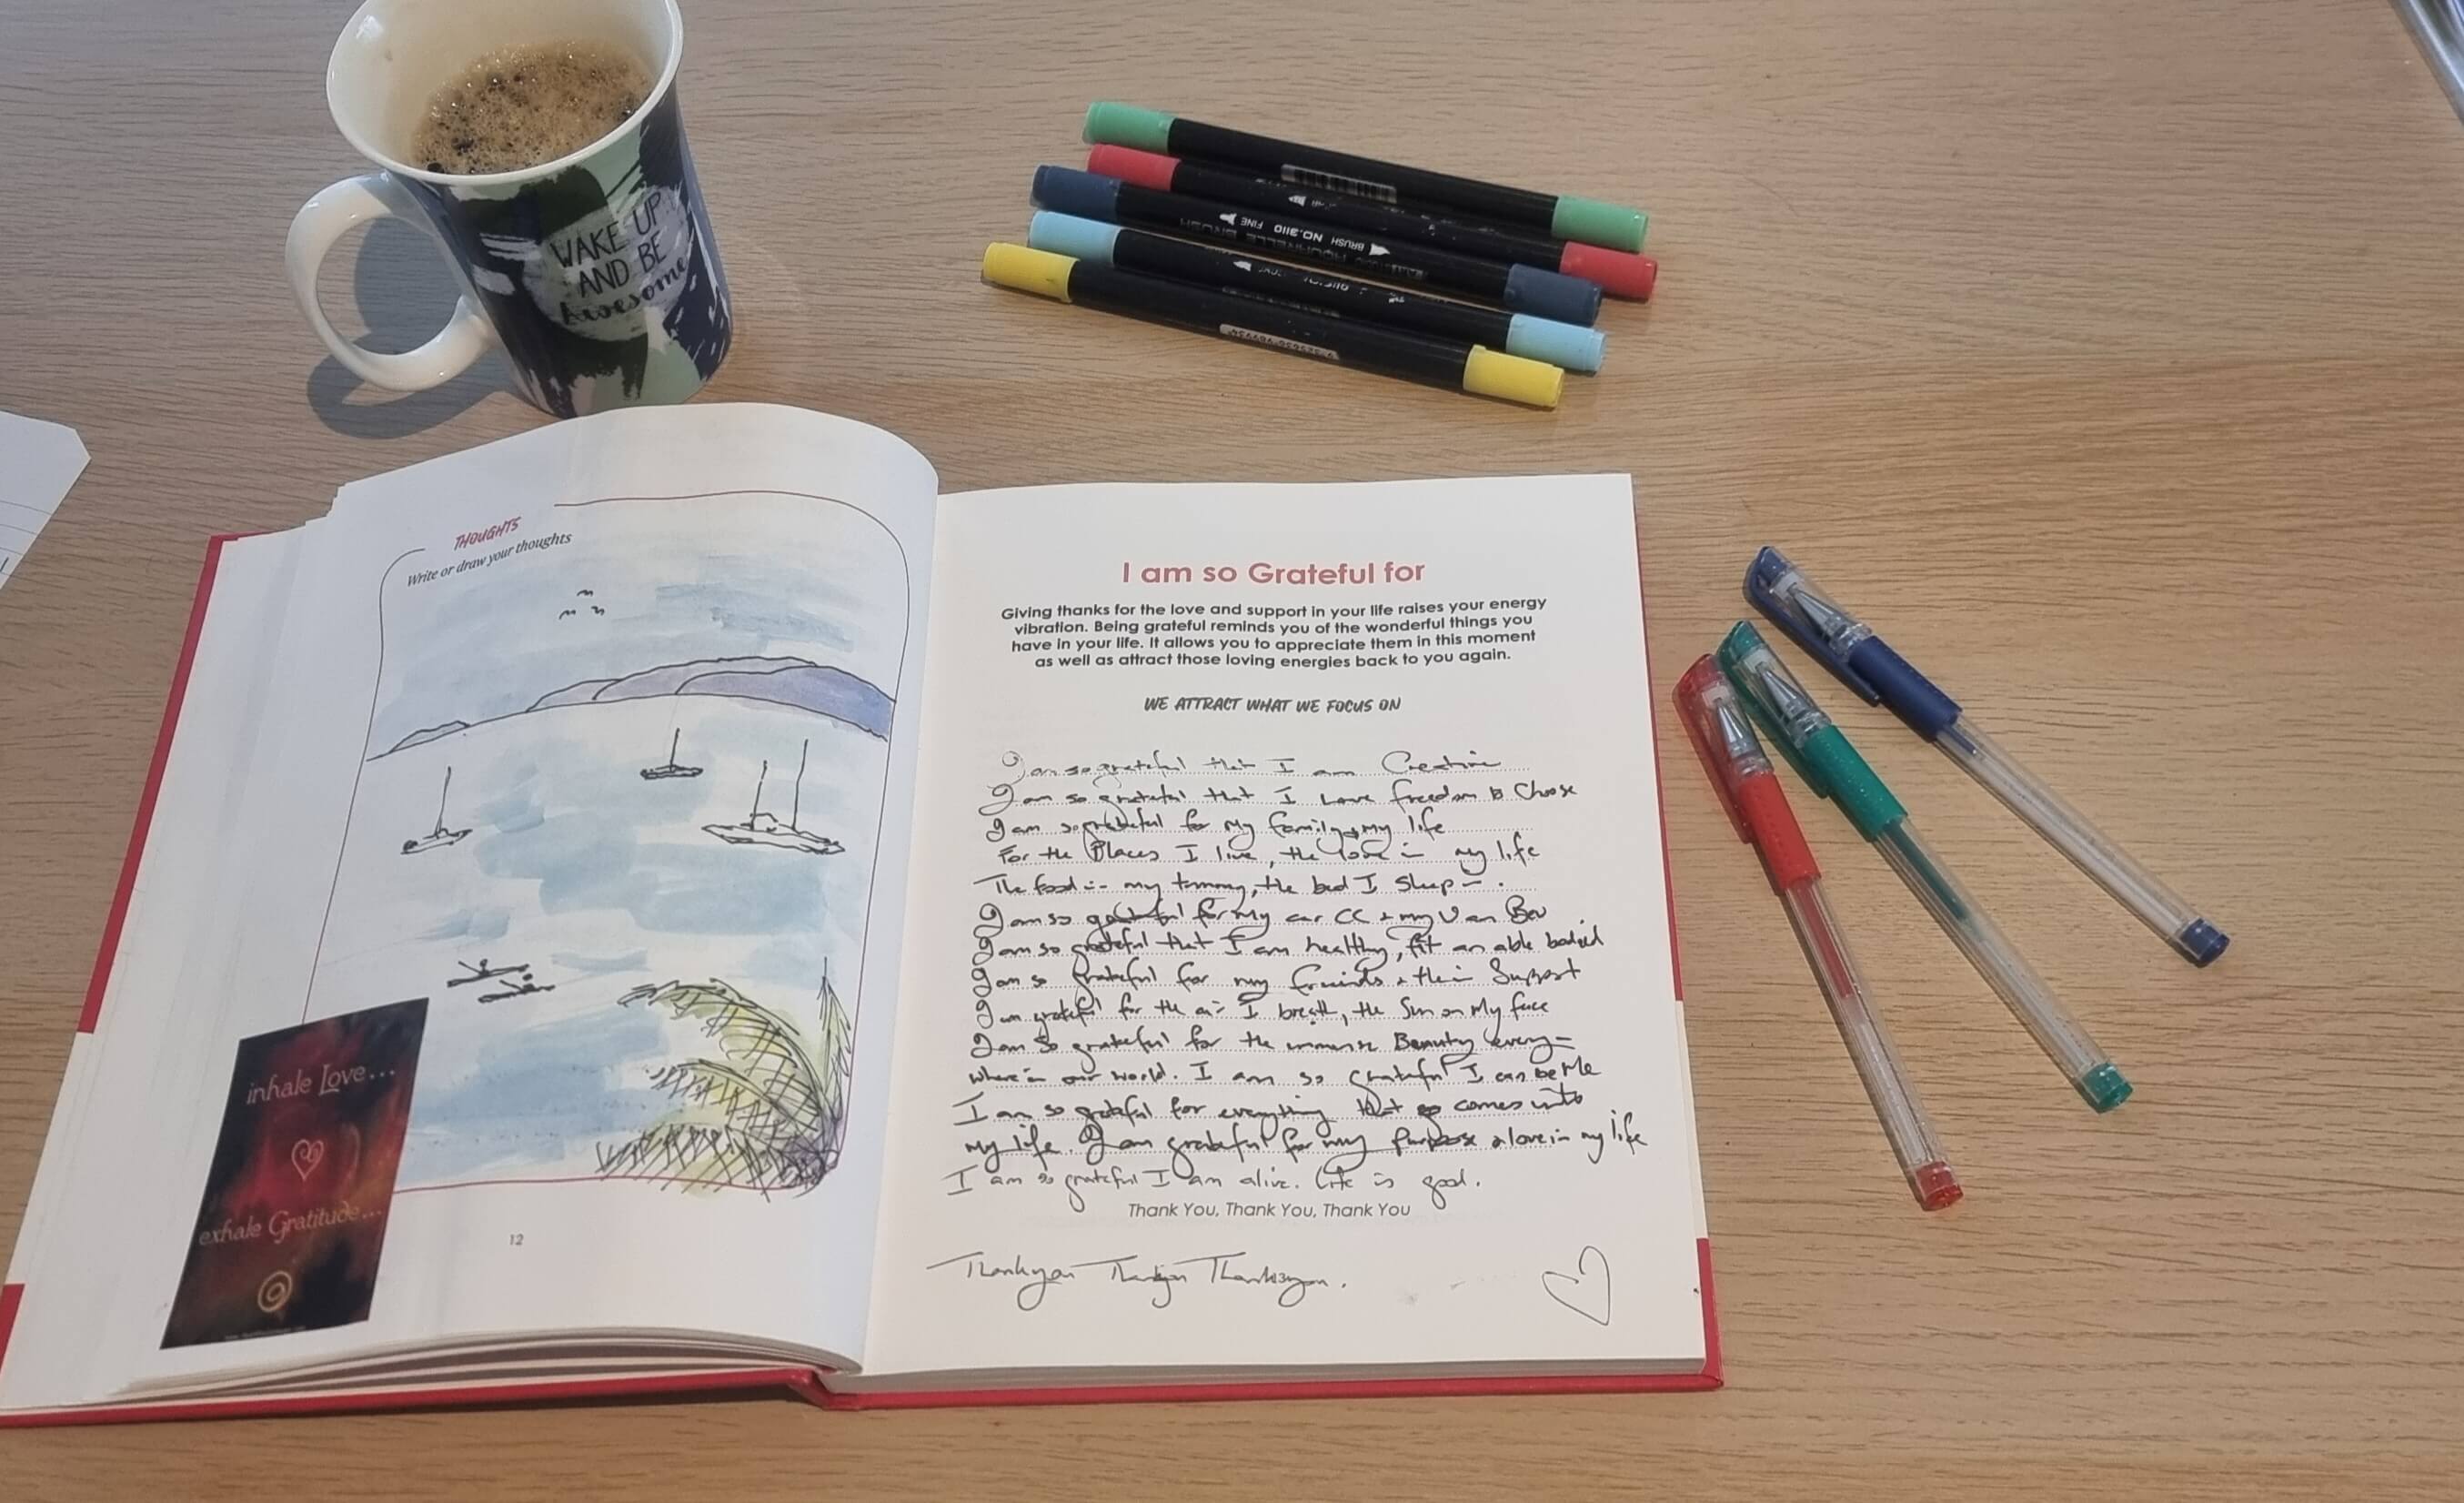 WAKE UP
AND BE
Awesome
BRUSH NO.3110 FINE
THOUGHTS
Write or draw your thoughts
inhale Love...
exhale Gratitude...
12
I am so Grateful for
Giving thanks for the love and support in your life raises your energy
vibration. Being grateful reminds you of the wonderful things you
have in your life. It allows you to appreciate them in this moment
as well as attract those loving energies back to you again.
WE ATTRACT WHAT WE FOCUS ON
I am so grateful that I am Creative
I am so grateful that I have freedom to Choose
I am so grateful for my family + my life
For the Places I live, the love in my life
The food in my tummy, the bed I sleep in.
I am so grateful for my car CC + my Van Bev
I am so grateful that I am healthy, fit an able bodied
I am so grateful for my friends + their Support
I am grateful for the air I breath, the Sun on My face
I am So grateful for the immense Beauty every-
where in our world. I am so grateful I can be Me
I am so grateful for everything that comes into
my life. I am grateful for my purpose + love in my life
I am so grateful I am alive. Life is good.
Thank You, Thank You, Thank You
Thankyou Thankyou Thankyou.